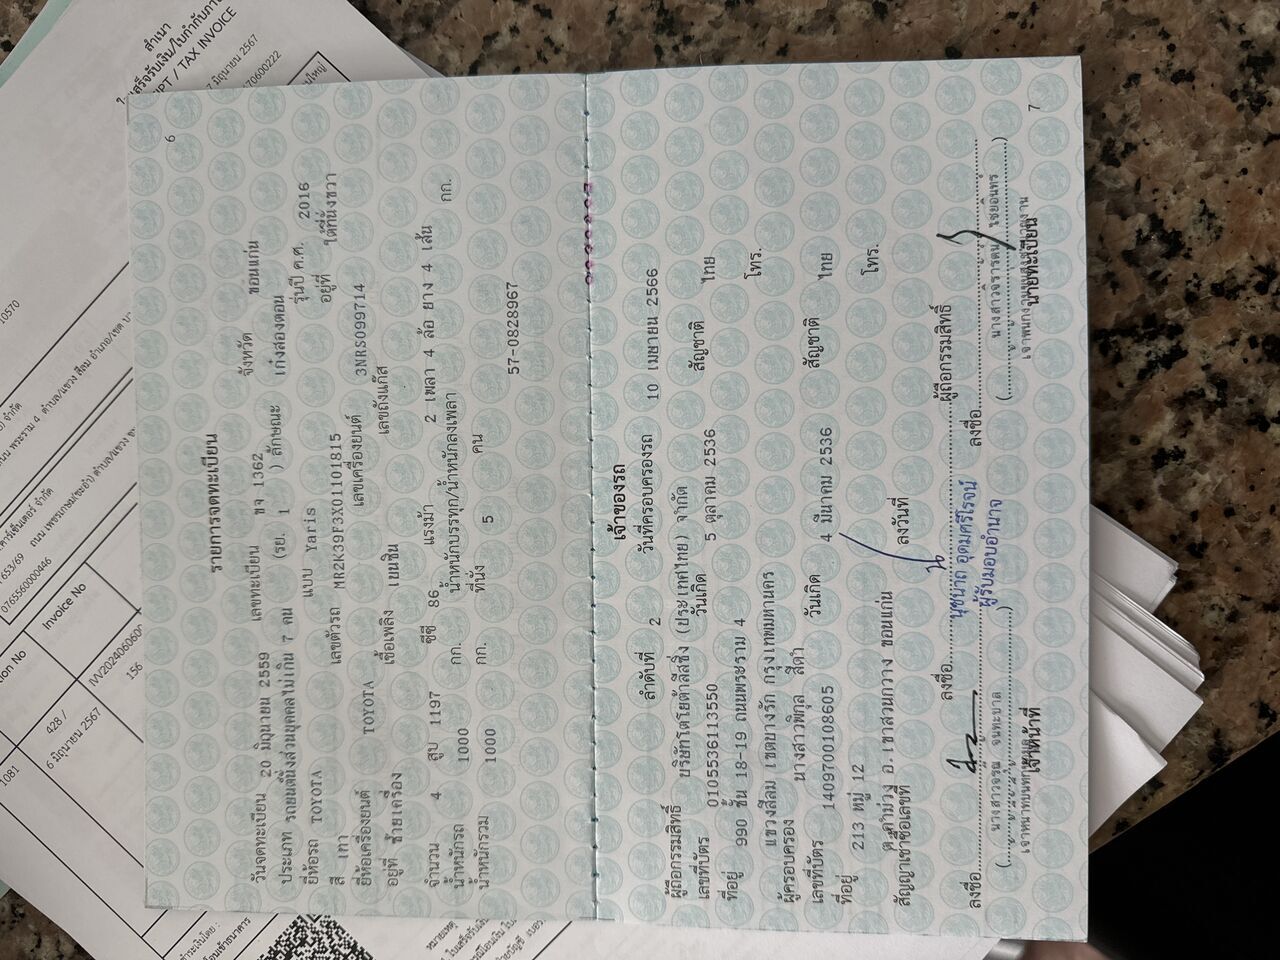 6
รายการจดทะเบียน
วันจดทะเบียน 20 มิถุนายน 2559 เลขทะเบียน ขจ 1362 จังหวัด ขอนแก่น
ประเภท รถยนต์นั่งส่วนบุคคลไม่เกิน 7 คน (รย. 1 ) ลักษณะ เก๋งสองตอน
ยี่ห้อรถ TOYOTA แบบ Yaris รุ่นปี ค.ศ. 2016
สี เทา เลขตัวรถ MR2K39F3X01101815 อยู่ที่ ใต้ที่นั่งขวา
ยี่ห้อเครื่องยนต์ TOYOTA เลขเครื่องยนต์ 3NRS099714
อยู่ที่ ซ้ายเครื่อง เชื้อเพลิง เบนซิน เลขถังแก๊ส
จำนวน 4 สูบ 1197 ซีซี 86 แรงม้า 2 เพลา 4 ล้อ ยาง 4 เส้น
น้ำหนักรถ 1000 กก. น้ำหนักบรรทุก/น้ำหนักลงเพลา กก.
น้ำหนักรวม 1000 กก. ที่นั่ง 5 คน
57-0828967
เจ้าของรถ
ลำดับที่ 2 วันที่ครอบครองรถ 10 เมษายน 2566
ผู้ถือกรรมสิทธิ์ บริษัทโตโยต้าลีสซิ่ง (ประเทศไทย) จำกัด
เลขที่บัตร 0105536113550 วันเกิด 5 ตุลาคม 2536 สัญชาติ ไทย
ที่อยู่ 990 ชั้น 18-19 ถนนพระราม 4 โทร.
แขวงสีลม เขตบางรัก กรุงเทพมหานคร
ผู้ครอบครอง นางสาวพิกุล สีดา
เลขที่บัตร 1409700108605 วันเกิด 4 มีนาคม 2536 สัญชาติ ไทย
ที่อยู่ 213 หมู่ 12 โทร.
ต.คำม่วง อ.เขาสวนกวาง ขอนแก่น
สัญญาเช่าซื้อเลขที่ ลงวันที่
ลงชื่อ ผู้ถือกรรมสิทธิ์
นุชนาถ อุดมศรีโรจน์
ผู้รับมอบอำนาจ
ลงชื่อ ลงชื่อ
เจ้าหน้าที่ นายทะเบียน
7
สำเนา
RECEIPT / TAX INVOICE
Invoice No
6 มิถุนายน 2567
428 /
1081
10570
0765560000446
653/69